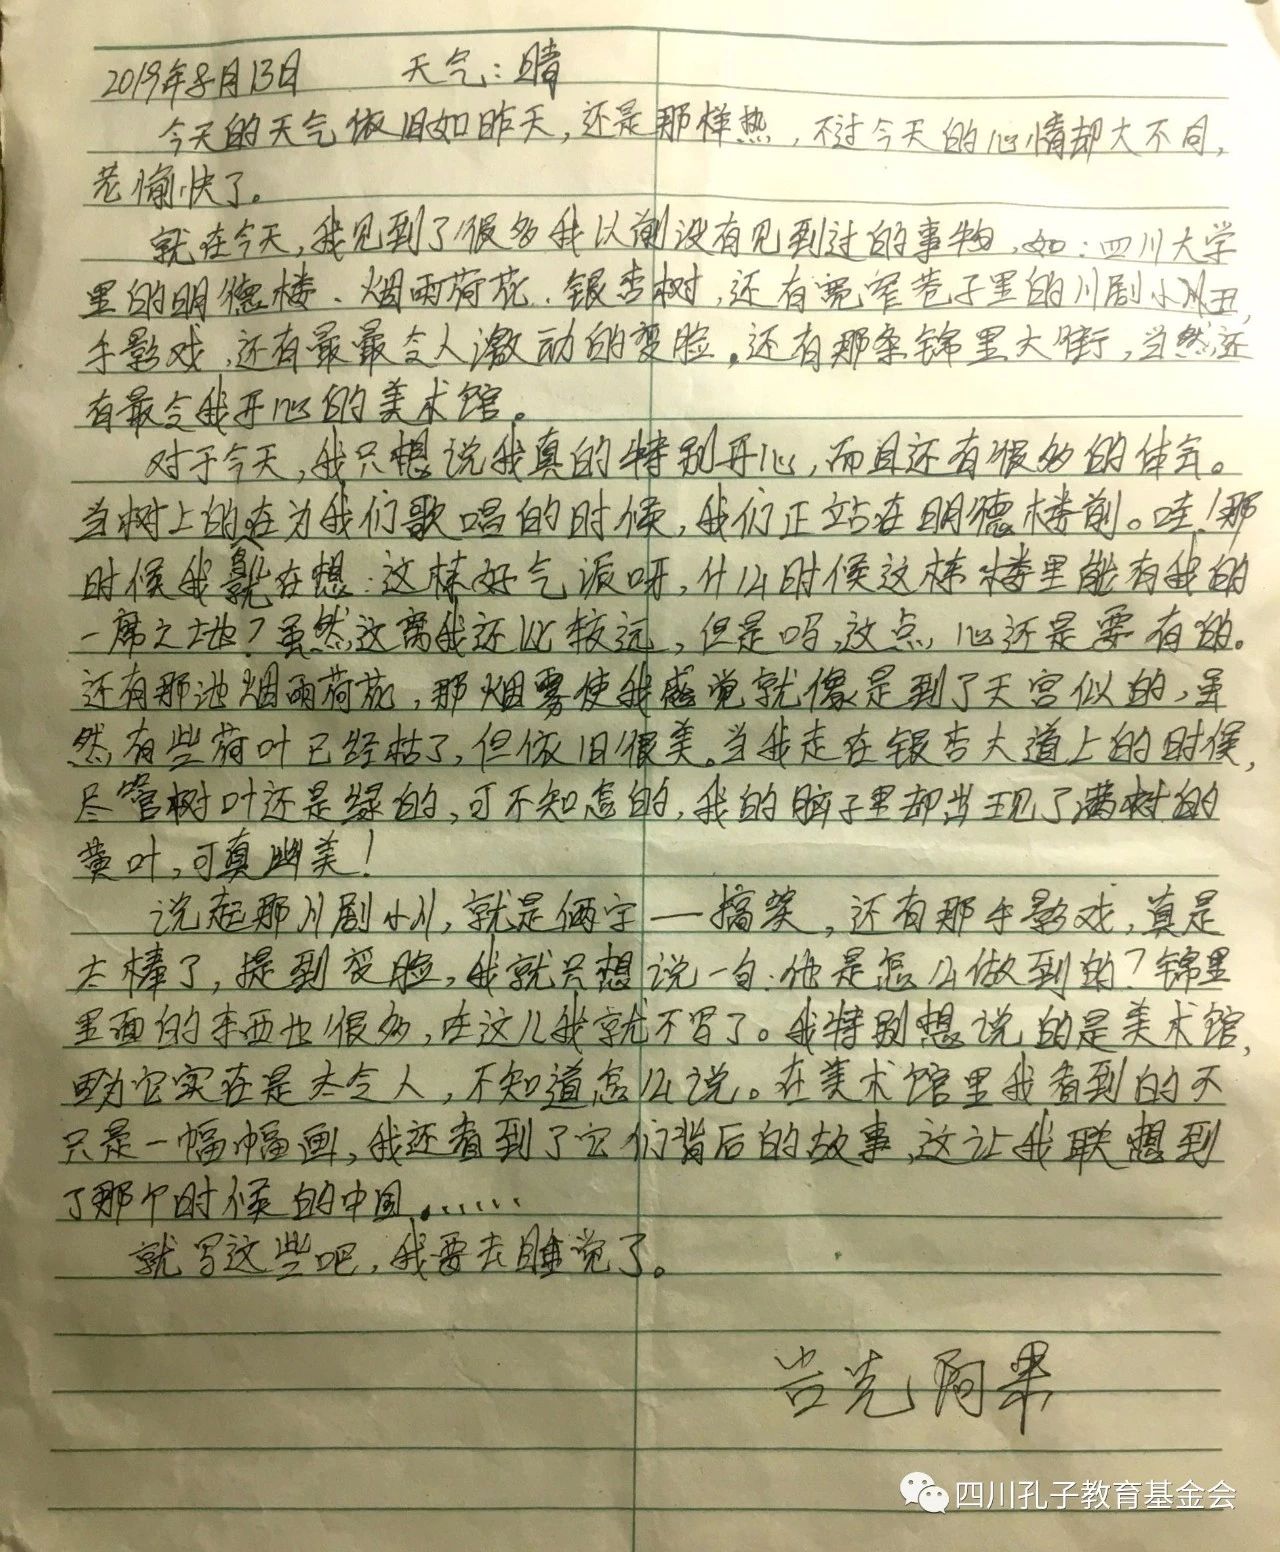 2019年8月13日 天气：晴
今天的天气依旧如昨天，还是那样热，不过今天的心情却大不同，
老愉快了。
就在今天，我见到了很多我以前没有见到过的事物，如：四川大学
里的明德楼、烟雨荷花、银杏树，还有宽窄巷子里的川剧小丑，
手影戏，还有最最令人激动的变脸。还有那条锦里大街，当然，还
有最令我开心的美术馆。
对于今天，我只想说我真的特别开心，而且还有很多的体会。
当树上的在为我们歌唱的时候，我们正站在明德楼前。哇！那
时候我就在想：这栋好气派呀，什么时候这栋楼里能有我的
一席之地？虽然，这离我还比较远，但是吗，这点，心还是要有的。
还有那池烟雨荷花，那烟雾使我感觉就像是到了天宫似的，虽
然，有些荷叶已经枯了，但依旧很美。当我走在银杏大道上的时候，
尽管树叶还是绿的，可不知怎的，我的脑子里却出现了满树的
黄叶，可真幽美！
说起那川剧小川，就是俩字——搞笑，还有那手影戏，真是
太棒了，提到变脸，我就只想说一句：他是怎么做到的？锦里
里面的东西也很多，在这儿我就不写了。我特别想说的是美术馆，
因为它实在是太令人，不知道怎么说。在美术馆里我看到的不
只是一幅幅画，我还看到了它们背后的故事，这让我联想到
了那个时候的中国。……
就写这些吧，我要去睡觉了。
吉克阿果
四川孔子教育基金会